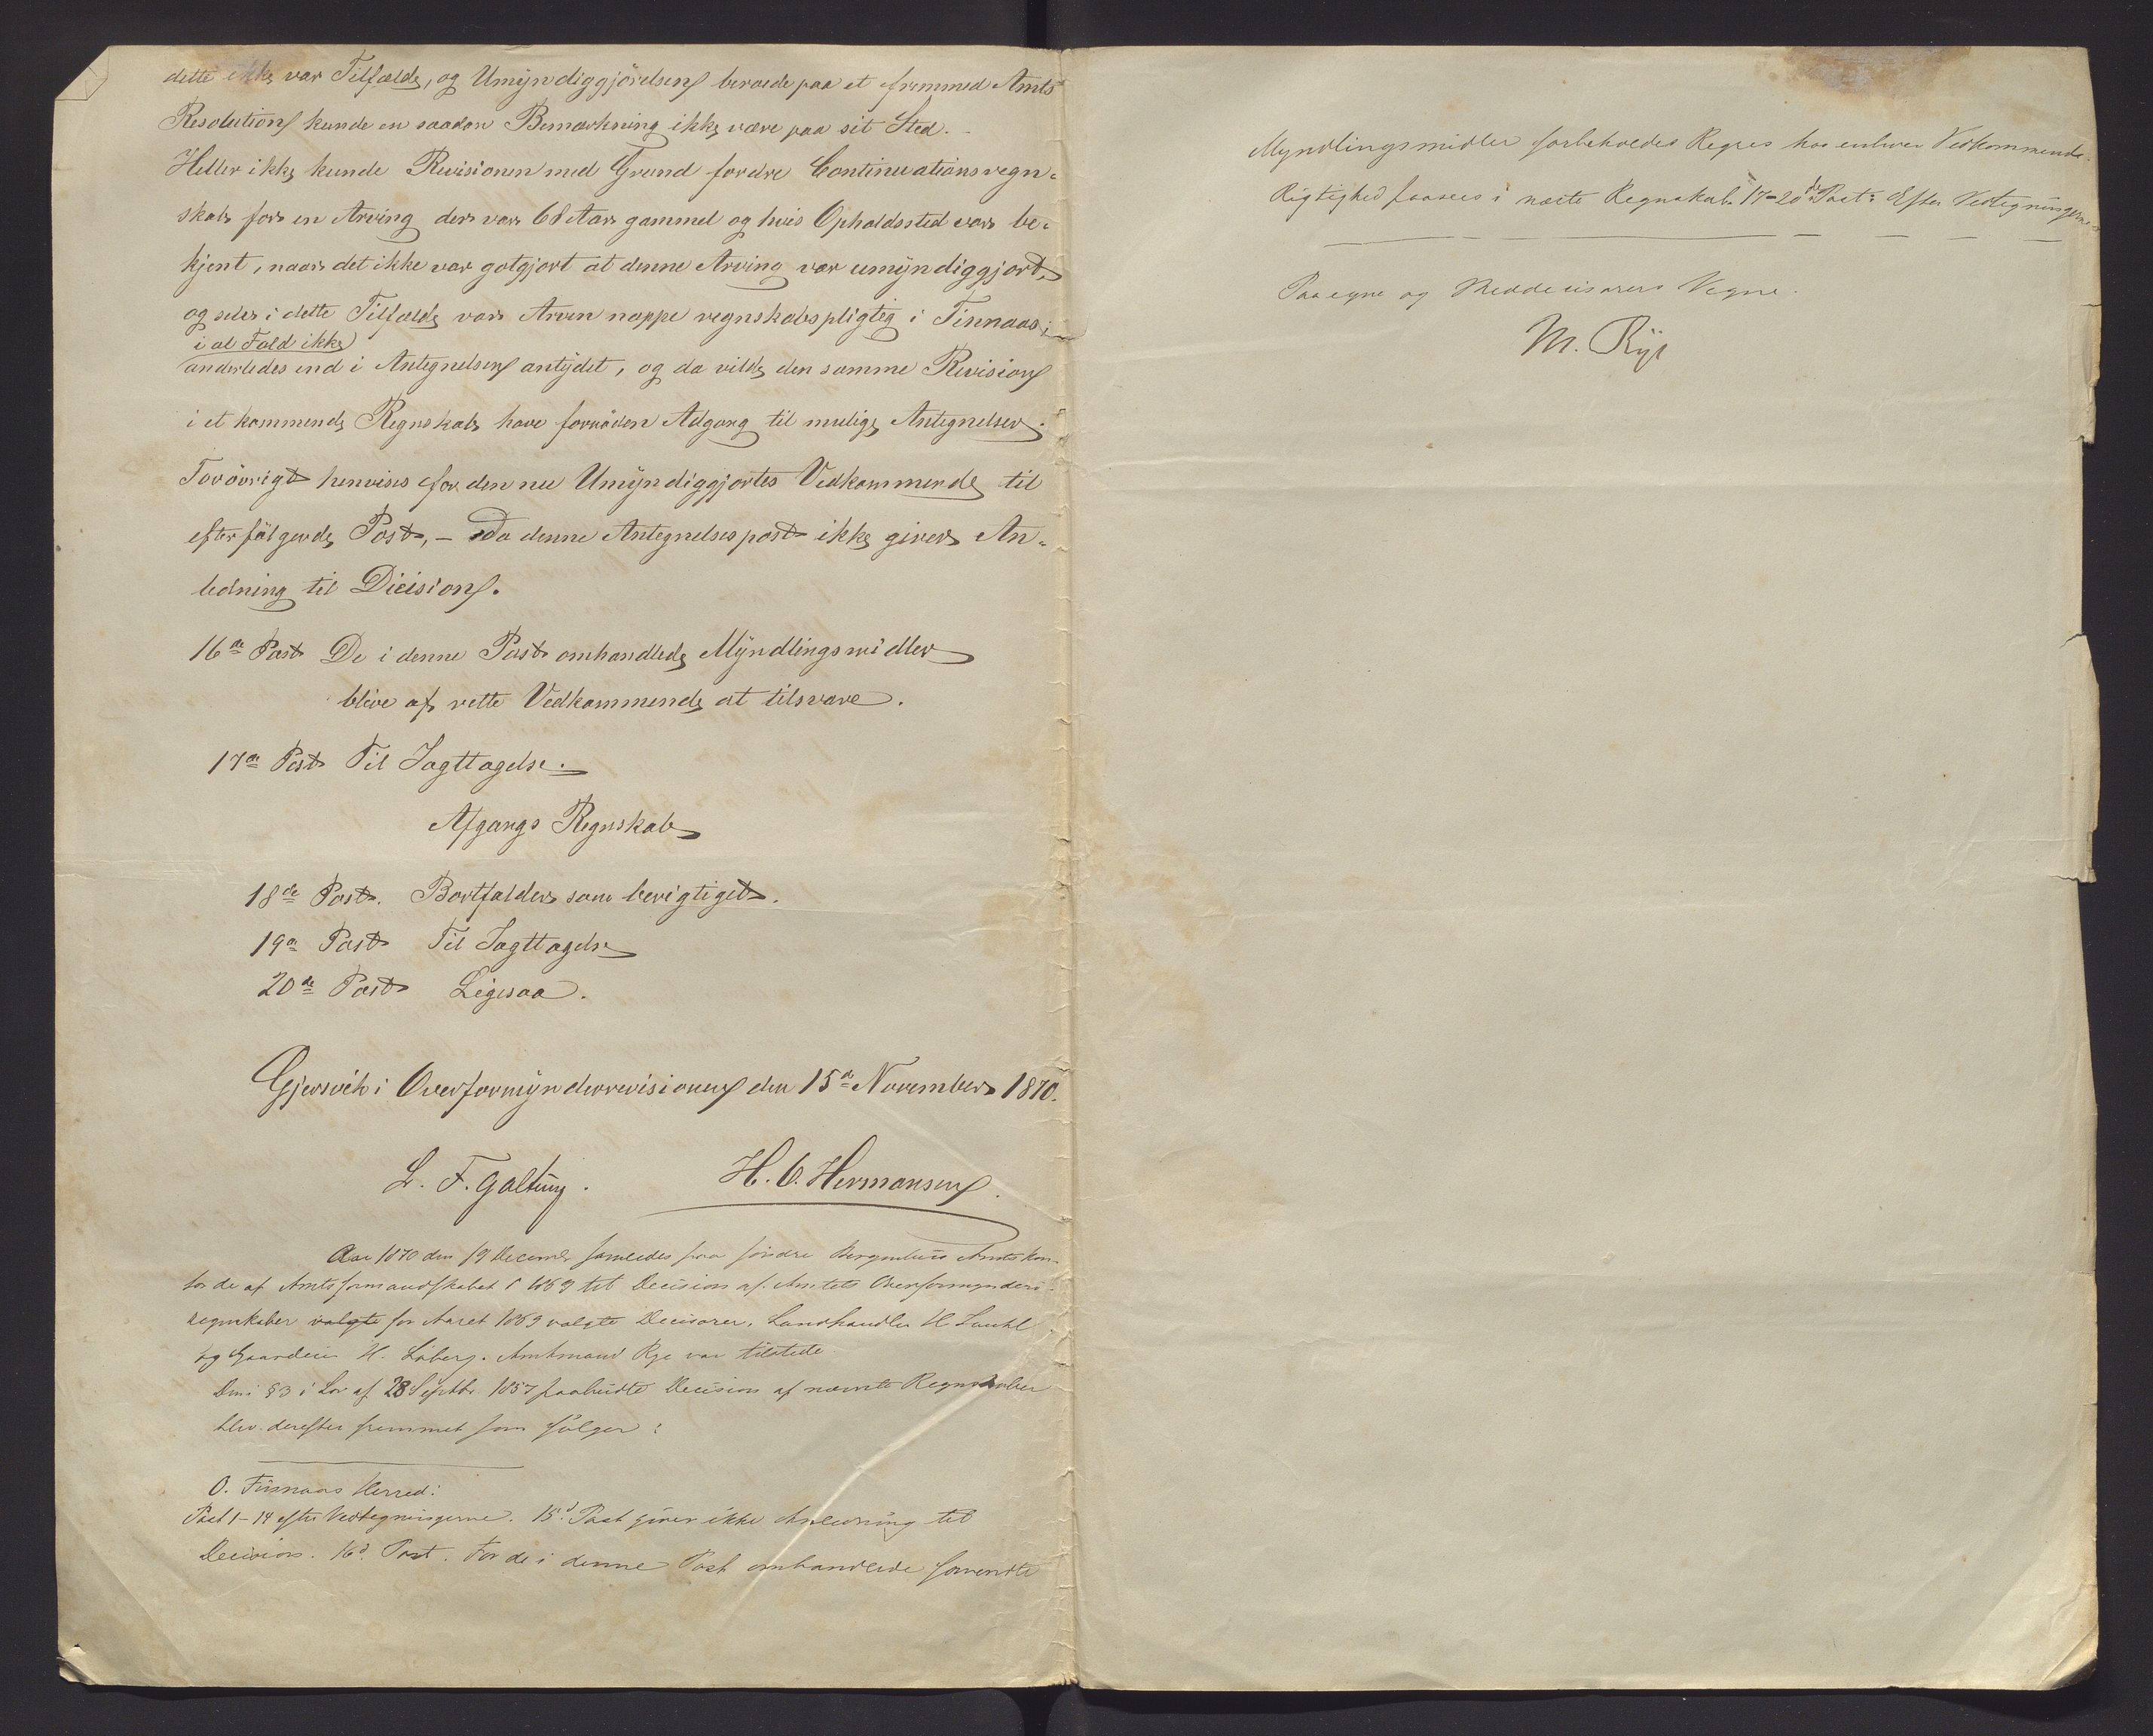 dette ikke var Tilfælde, og Umyndiggjörelsen beroede paa et fremmed Amts
Resolution kunde en saadan Bemærkning ikke være paa sit Sted. –
Heller ikke kunde Revisionen med Grund fordre Continuationsregn-
skab for en Arving der var 68 Aar gammel og hvis Opholdssted var be-
kjent, naar det ikke var gotgjort at denne Arving var umyndiggjort,
og selv i dette Tilfælde var Arven neppe regnskabspligtig i Finnaas,
i al Fald ikke
anderledes end i Antegnelsen antydet, og da vilde den samme Revision
i et kommende Regnskab have fornöden Adgang til mulige Antegnelser.
Forövrigt henvises for den nu Umyndiggjortes Vedkommende til
efterfölgende Post, – Da denne Antegnelsespost ikke giver An-
ledning til Dicision.
16de Post De i denne Post omhandlede Myndlingsmidler
blive af rette Vedkommende at tilsvare.
17de Post Til Iagttagelse.
Afgangs Regnskab
18de Post. Bortfalder som berigtiget.
19de Post Til Iagttagelse
20de Post Ligesaa.
Gjersvik i Overformynderrevisionen den 15de November 1870.
L. F. Galtung. H. O. Hermansen.
Aar 1870 den 19 Decembr samledes paa söndre Bergenhus Amtskon-
tor de af Amtsformandskabet i 1869 til Decision af Amtets Overformynderi-
regnskaber valgte for Aaret 1869 valgte Decisorer, Landhandler H
og Gaardeier H. Löberg. Amtmand Rye var tilstede.
Den i §3 i Lov af 28 Septbr 1857 paabudte Decision af nævnte Regnskaber
blev derefter fremmet som fölger:
O. Finnaas Herred:
Post 1–14 efter Vedtegningerne. 15d Post giver ikke Anledning til
Decision. 16d Post. For de i denne Post omhandlede
Myndlingsmidler forbeholdes Regres hos enhver Vedkommende.
Rigtighed paasees i næste Regnskab. 17–20de Post: Efter Vedtegningerne.
Paa egne og Meddecisorers Vegne.
M. Rye